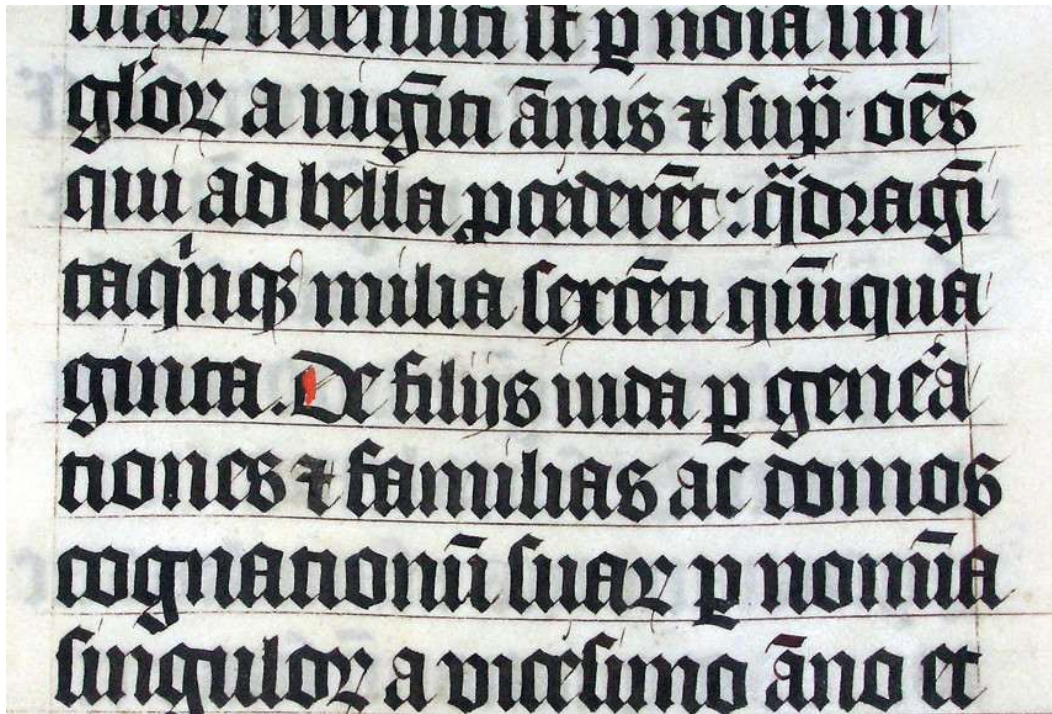 suaꝝ recensiti sūt ꝑ noīa sin
gl'oꝝ a uigīti ānis ⁊ sup̄ · oēs
qui ad bella ꝓcederēt : qͣdragī
taqͥnqꝫ milia sexcēti qūiqua
ginta. De filijs iuda ꝑ gen̾a
tiones ⁊ familias ac domos
cognationū suaꝝ ꝑ nomīa
singuloꝝ a vicesimo āno et